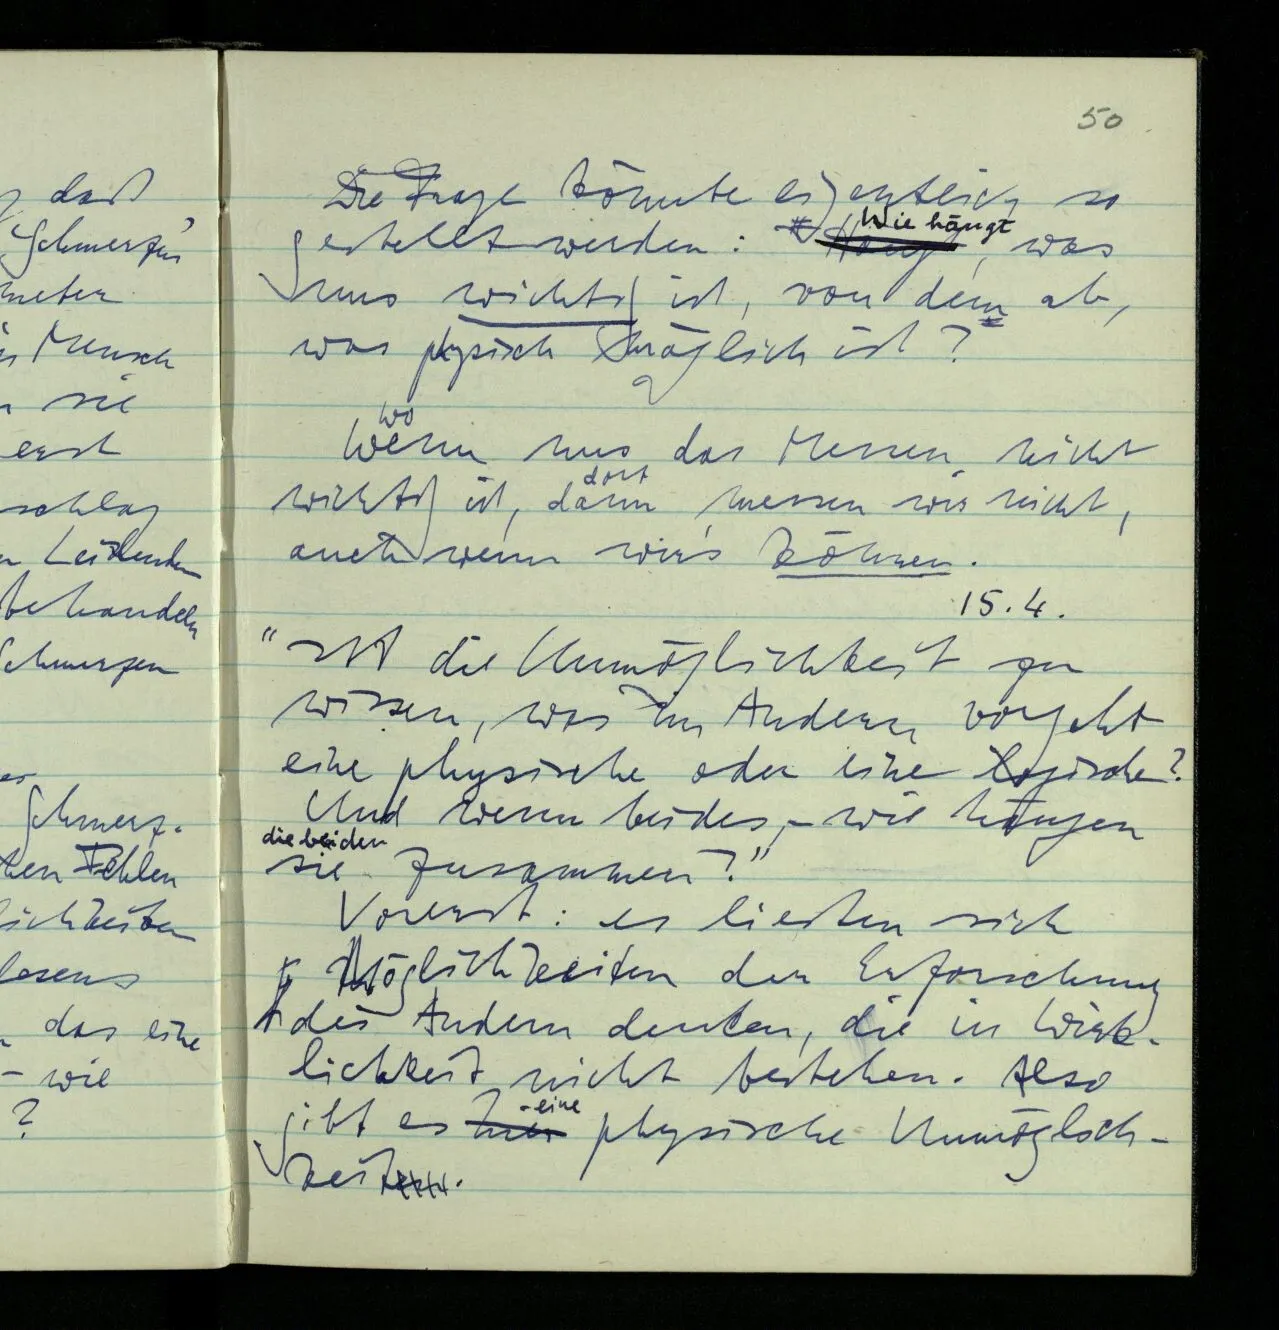 50
daß
Schmerzen
Mensch
sie
erst
schlag
Leidenden
behandeln
Schmerzen
Schmerz-
Fehlen
das eine
– wie
?
Die Frage könnte eigentlich so
Wie hängt
gestellt werden: , was
uns wichtig ist, von dem ab,
was physisch möglich ist?
wo
Wenn uns das Messen nicht
dort
wichtig ist, dann messen wir nicht,
auch wenn wir's können.
15.4.
"Ist die Unmöglichkeit zu
wissen, was im Andern vorgeht
eine physische oder eine logische?
Und wenn beides, – wie hängen
die beiden
sie zusammen?"
Vorerst: es ließen sich
Möglichkeiten der Erforschung
des Andern denken, die in Wirk-
lichkeit nicht bestehen. Also
eine
gibt es physische Unmöglich-
keit.